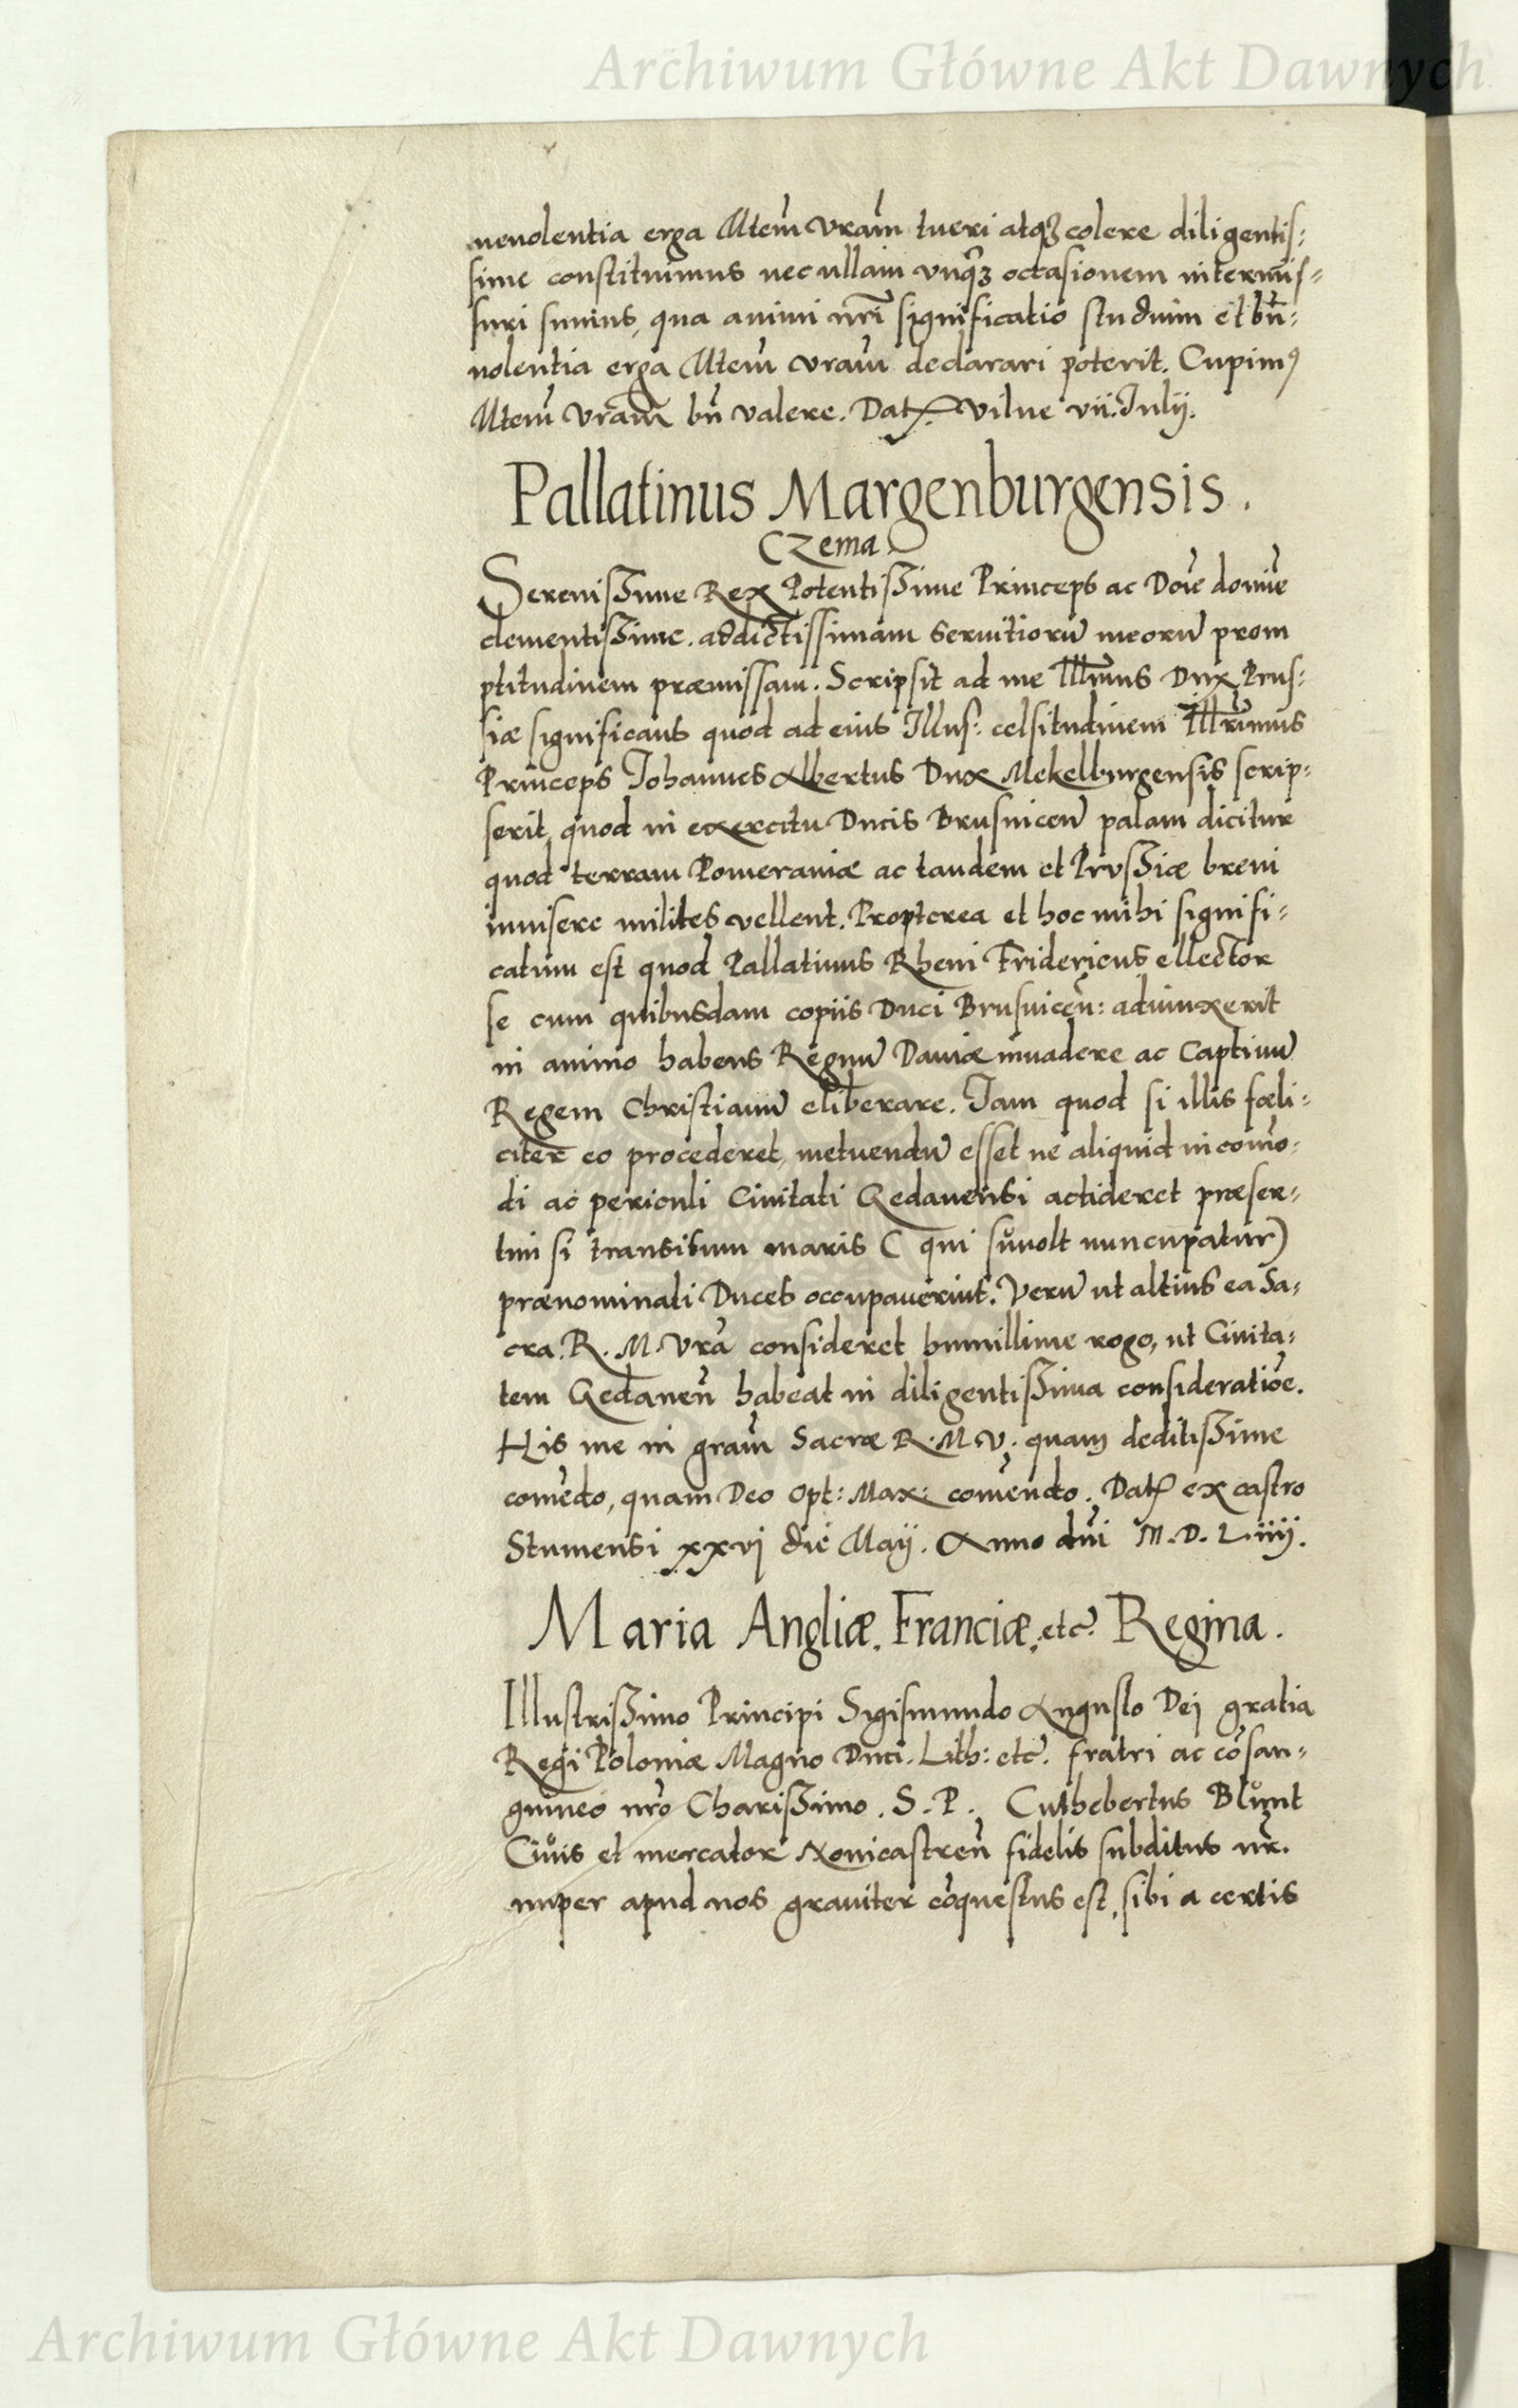 Archiwum Główne Akt Dawnych
nevolentia erga Mtem̃ vram̃ tueri atqꝫ colere diligentis:
sime constituimus nec ullam vnq̃ꝫ occasionem intermis-
suri sumus, qua animi nr̃i significatio studium et bñ:
volentia erga Mtem̃ vram̃ declarari poterit. Cupimꝰ
Mtem̃ vram̃ bñ valere. Dat. Vilne vii. Iulij.
Pallatinus Margenburgensis.
Czema.
Serenissime Rex Potentissime Princeps ac Dñe domĩe
clementissime. addictissimam seruitiorũ meorũ prom
ptitudinem præmissam. Scripsit ad me Illr̃mus Dux Prus:
siæ significans quod ad eius Illus: celsitudinem Illr̃imus
Princeps Iohannes Albertus Dux Mekelburgensis scrip:
serit, quod in exercitu Ducis Brusuicen̄ palam dicitur
quod terram Pomeraniæ ac tandem et Prvssiæ breui
inuisere milites vellent. Propterea et hoc mihi signifi:
catum est quod Pallatinus Rheni Fridericus ellector
se cum quibusdam copiis Duci Brusuiceñ: adiunxerit
in animo habens Regnũ Daniæ inuadere ac Captiuũ
Regem Christianũ eliberare. Iam quod si illis fœli:
citer eo procederet, metuendũ esset ne aliquid incom̃o:
di ac periculi Ciuitati Gedanensi actideret præser:
tim si transitum maris ( qui sůnolt nuncupatur)
prænominati Duces occupauerint. Verũ ut altius ea Sa:
cra. R. M. Vrã consideret humillime rogo, ut Ciuita:
tem Gedaneñ habeat in diligentissima consideratiõe.
His me in gram̃ Sacræ R. M. V. quam deditissime
comẽdo, quam Deo Opt: Max: com̃endo. Dat ex castro
Stumensi xxvj die Maij. Anno dñi M.D.Liiij.
Maria Angliæ. Franciæ. etc. Regina.
Illustrissimo Principi Sigismundo Augusto Dei gratia
Regi Poloniæ Magno Duci. Lith: etc. fratri ac cõsan:
guineo nr̃o Charissimo. S. P. Cuthebertus Blůnt
Ciůis et mercator Nouicastreñ fidelis subditus nr̃.
nuper apud nos grauiter cõquestus est, sibi a certis
Archiwum Główne Akt Dawnych